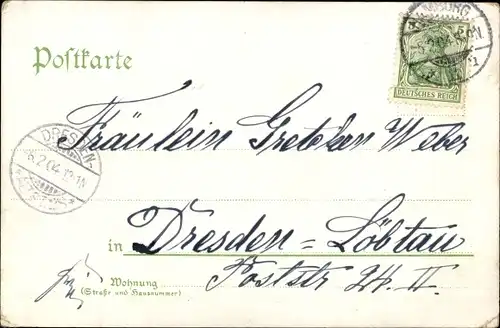 MBURG
5
DEUTSCHES REICH
Postkarte
DRESDEN-
6.2.04. 12-1N
Fräulein Gretchen Weber
in Dresden-Löbtau
Poststr 24. II.
Wohnung
(Straße und Hausnummer)